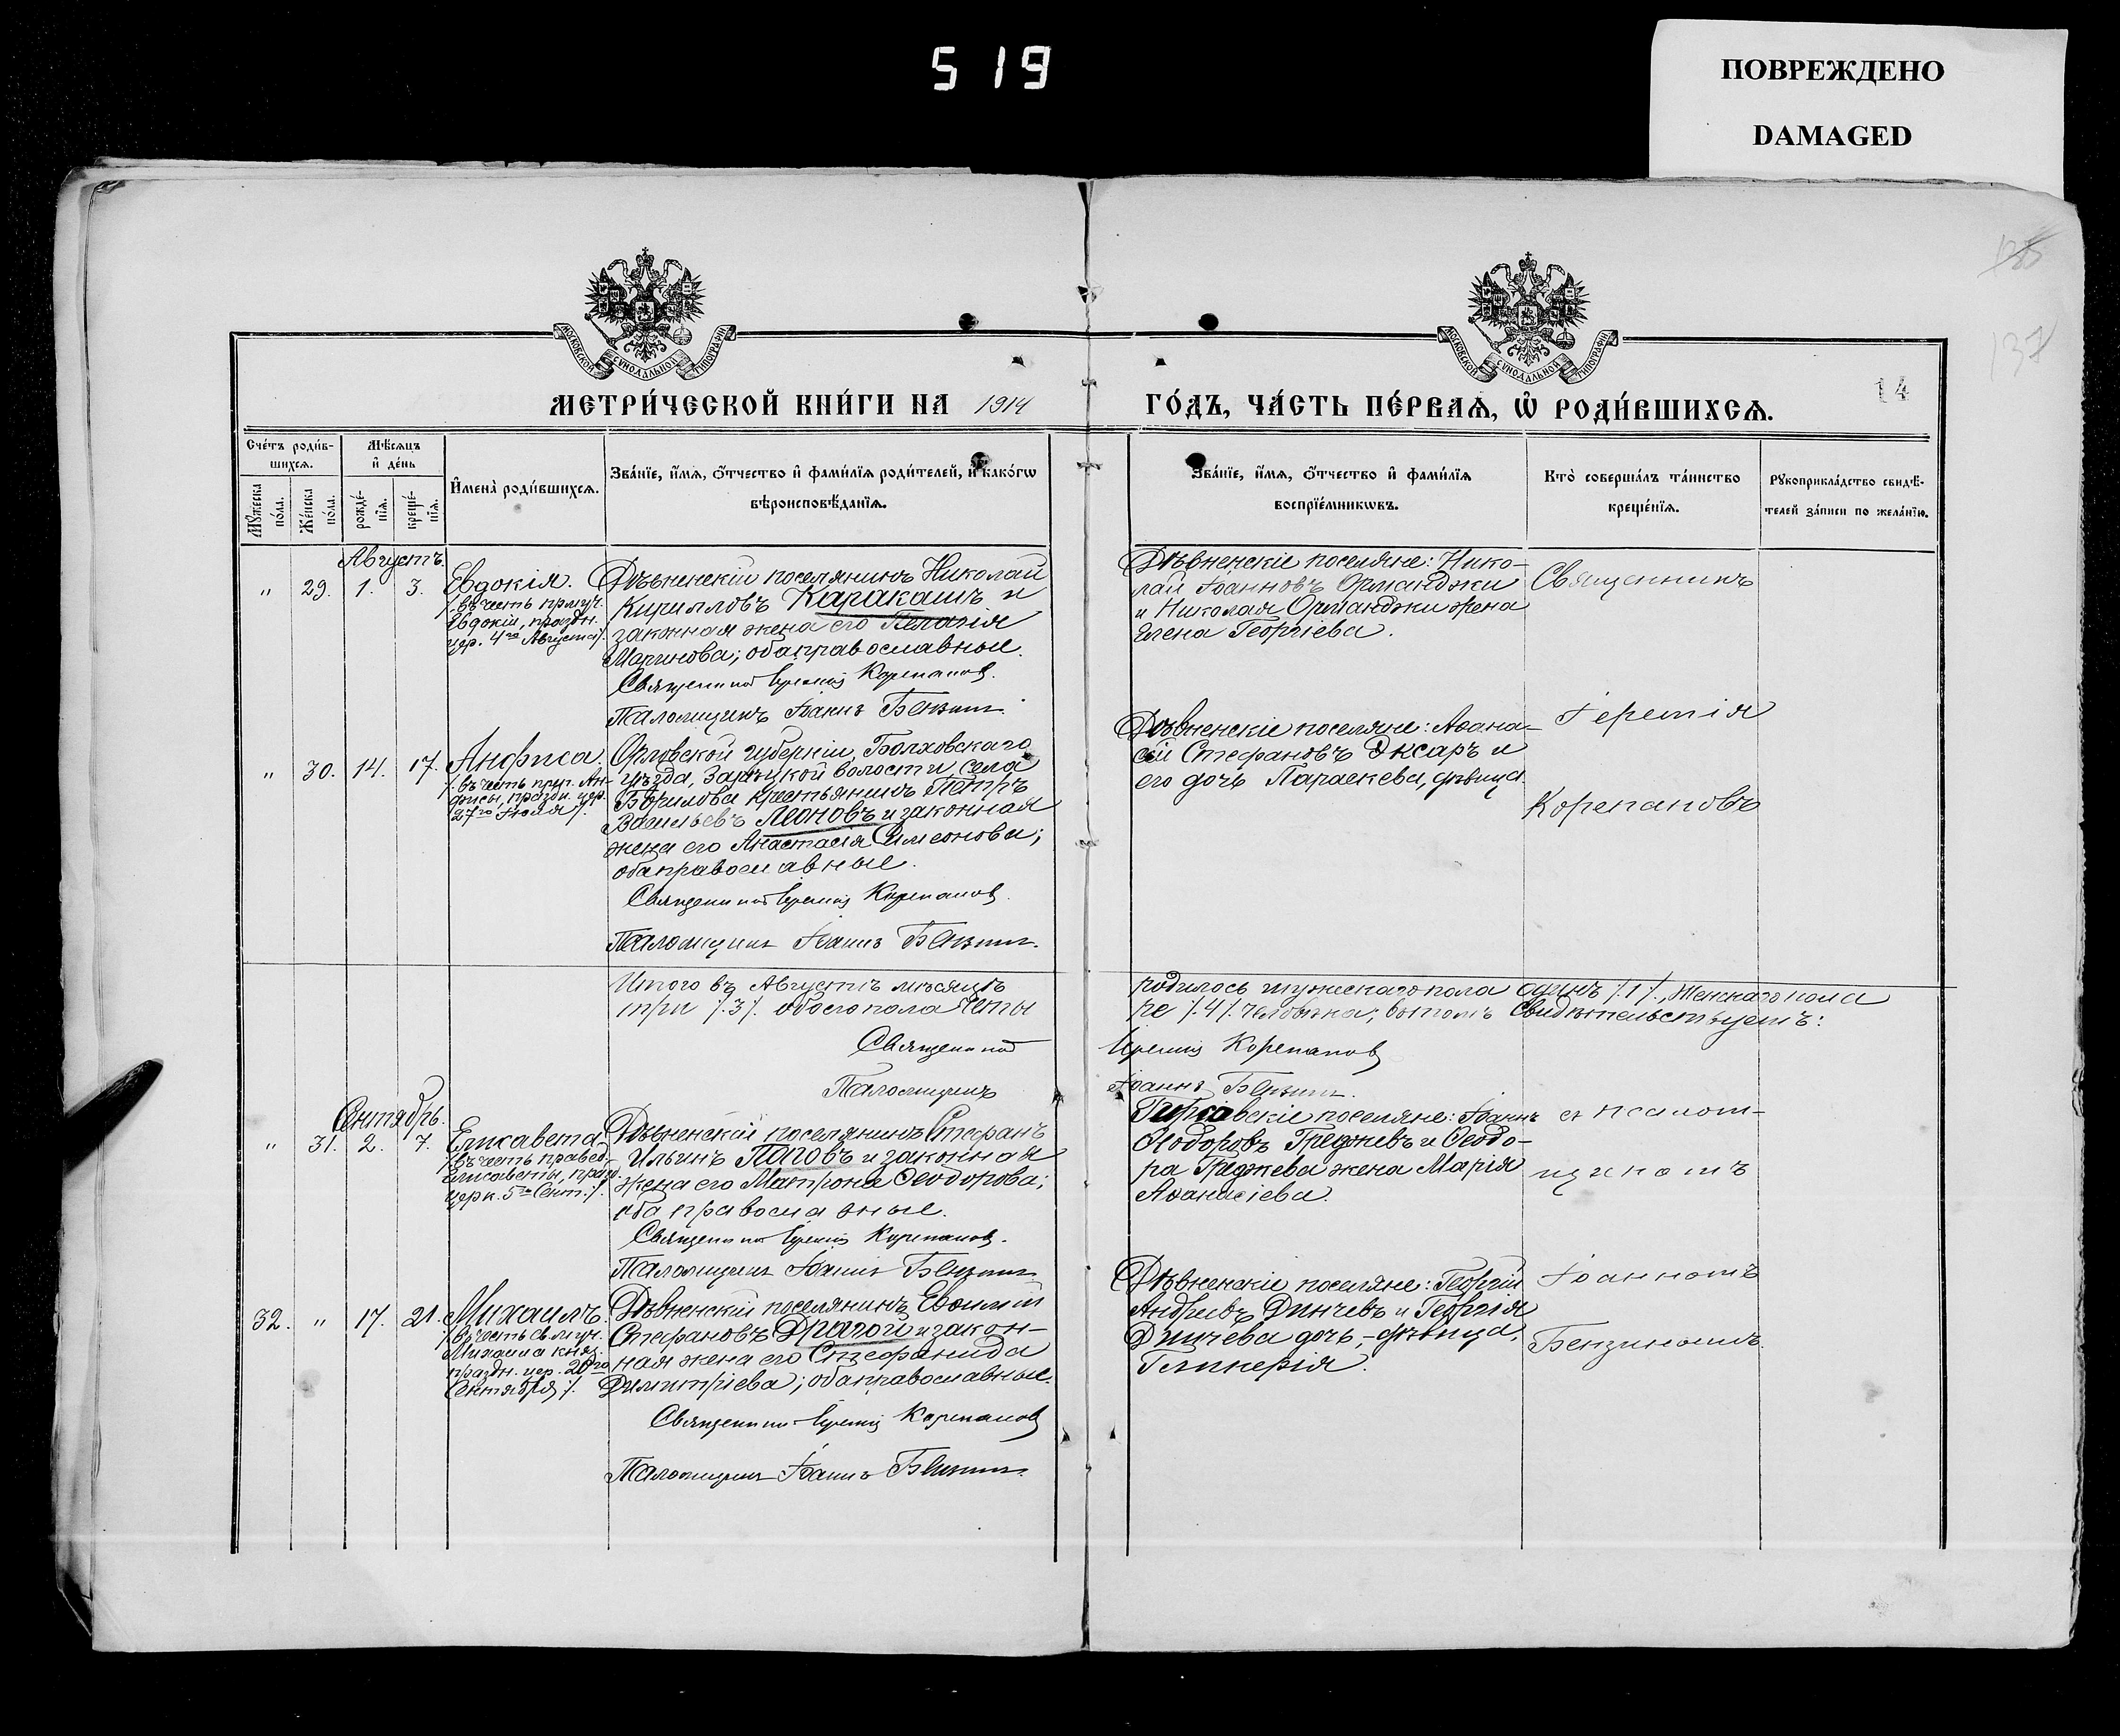 519
ПОВРЕЖДЕНО
DAMAGED
137
14
МОСКОВСКОЙ СѴНОДАЛЬНОЙ ТИПОГРАФІИ
МОСКОВСКОЙ СѴНОДАЛЬНОЙ ТИПОГРАФІИ
МЕТРИ́ЧЕСКОЙ КНИ́ГИ НА 1914
ГО́ДЪ, ЧА́СТЬ ПЕ́РВАѦ, Ѡ РОДИ́ВШИХСѦ.
Сче́тъ роди́в-
шихсѧ.
Мꙋ́жеска по́ла.
Же́нска по́ла.
Мѣ́сѧцъ
и де́нь
рожде́-
нїѧ.
креще́-
нїѧ.
И҆мена̀ роди́вшихсѧ.
Зва́нїе, и҆́мѧ, ѻ҆́тчество и҆ фами́лїѧ роди́телей, и҆ како́гѡ
вѣроисповѣ́данїѧ.
Зва́нїе, и҆́мѧ, ѻ҆́тчество и҆ фами́лїѧ
воспрїе́мникѡвъ.
Кто̀ соверша́лъ та́инство
креще́нїѧ.
Рꙋкоприкла́дство свидѣ́-
телей за́писи по жела́нїю.
Августъ.
" 29. 1. 3.
Евдокія.
/въ честь прмуч.
Евдокіи, праздн.
цер. 4го Августа/.
Дѣвненскій поселянинъ Николай
Кирилловъ Каракашъ и
законная жена его Пелагія
Маринова; оба православные.
Священникъ Іеремія Корепановъ.
Псаломщикъ Іоаннъ Бензинъ.
Дѣвненскіе поселяне: Нико-
лай Іоанновъ Орманджи
и Николая Орманджи жена
Елена Георгіева.
Священникъ
Іеремія
Корепановъ
" 30. 14. 17.
Анфиса.
/въ честь прп. Ан-
фисы, праздн. цер.
27го Іюля/.
Орловской губерніи, Болховскаго
уѣзда, Зарѣцкой волости, села
Борилова крестьянинъ Петръ
Васильевъ Леоновъ и законная
жена его Анастасія Симеонова;
оба православные.
Священникъ Іеремія Корепановъ.
Псаломщикъ Іоаннъ Бензинъ.
Дѣвненскіе поселяне: Аѳана-
сій Стефановъ Эксаръ и
его дочь Параскева, дѣвица.
Итого въ Августѣ мѣсяцѣ
родилось мужескаго пола одинъ /.1/., женскаго пола
три /.3/. обоего пола четы
ре /.4/. человѣка; въ томъ свидѣтельствуемъ:
Священникъ
Іеремія Корепановъ
Псаломщикъ
Іоаннъ Бензинъ.
Сентябрь.
" 31. 2. 7.
Елисавета
/въ честь правед.
Елисаветы, празд.
церк. 5го Сент./.
Дѣвненскій поселянинъ Стефанъ
Ильинъ Паговъ и законная
жена его Матрона Ѳеодорова;
оба православные.
Священникъ Іеремія Корепановъ.
Псаломщикъ Іоаннъ Бензинъ
поселяне: Іоаннъ
Ѳеодоровъ Греджевъ и Ѳеодо-
ра Греджева жена Марія
Аѳанасіева.
съ псалом-
щикомъ
Іоанномъ
Бензиномъ.
32. " 17. 21.
Михаилъ.
/въ честь св. муч.
Михаила княз.
праздн. цер. 20го
Сентября/.
Дѣвненскій поселянинъ Евѳимій
Стефановъ Драгой и закон-
ная жена его Стефанида
Димитріева; оба православные.
Священникъ Іеремія Корепановъ
Псаломщикъ Іоаннъ Бензинъ.
Дѣвненскіе поселяне: Георгій
Андреевъ Динчевъ и Георгія
Динчева дочь,-дѣвица,
Гликерія.